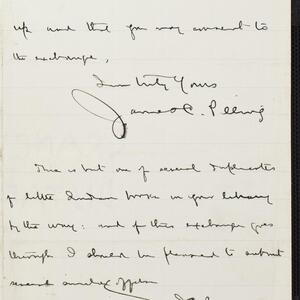 up and that you may consent to
the exchange,
Yours
James C. Pilling
This is but one of several duplicates
of little Indian books in your library
by the way: and if this exchange goes
through I should be pleased to submit
several